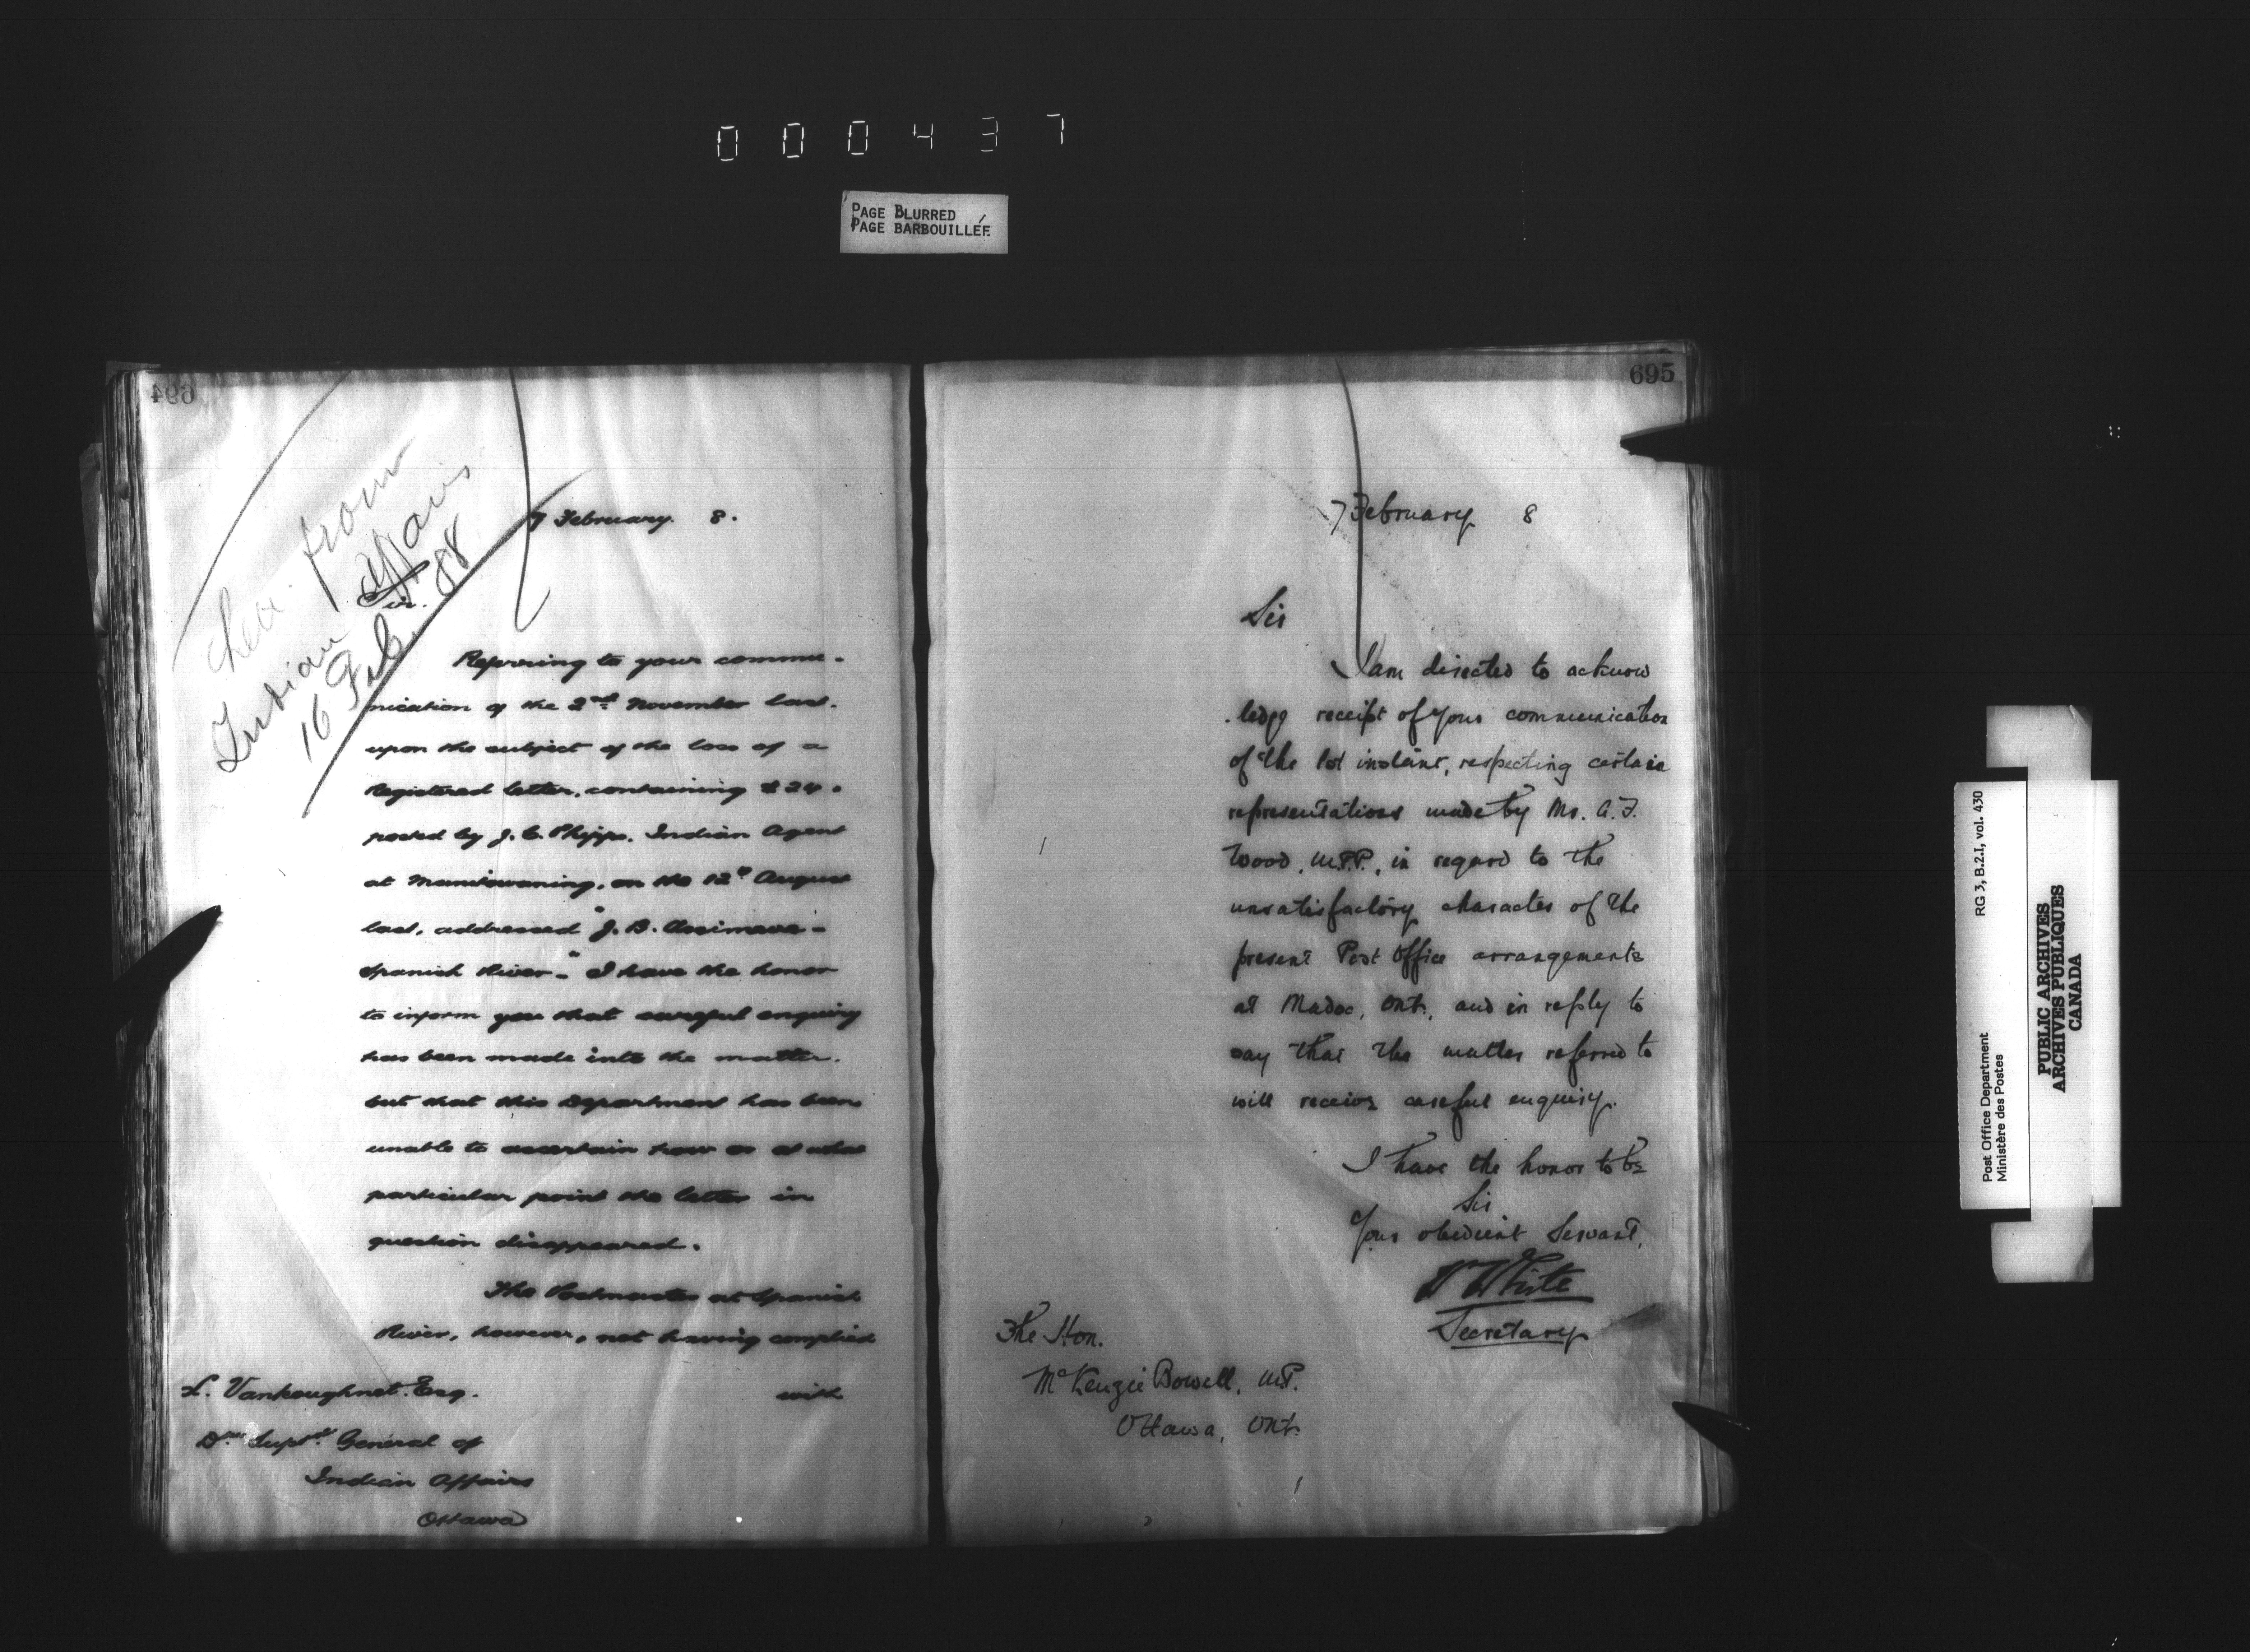 000437
PAGE BLURRED
PAGE BARBOUILLÉE
694
from
Indian Affairs
16 Feb. 88
7 February 8.
Sir.
Referring to your commu-
nication of the 2nd November last.
upon the subject of the loss of a
Registered letter, containing $24.
posted by J. C. Phipps. Indian Agent
at Manitowaning, on the 12th August
last, addressed "J. B.
Spanish River-" I have the honor
to inform you that careful enquiry
has been made into the matter.
but that this Department has been
unable to ascertain how or at what
particular point the letter in
question disappeared.
The Postmaster at Spanish
River, however, not having complied
with
L. Vankoughnet. Esq.
Dy Supt. General of
Indian Affairs
Ottawa
695
7 February 8
Sir
I am directed to acknow
.ledge receipt of your communication
of the 1st instant, respecting certain
representations made by Mr. A. F.
Wood, M.P.P., in regard to the
unsatisfactory character of the
present Post Office arrangements
at Madoc, Ont., and in reply to
say that the matter referred to
will receive careful enquiry.
I have the honor to be
Sir
Your obedient Servant,
W White
Secretary
The Hon.
McKenzie Bowell, M.P.
Ottawa, Ont.
Post Office Department
Ministère des Postes
RG 3, B.2.I, vol. 430
PUBLIC ARCHIVES
ARCHIVES PUBLIQUES
CANADA